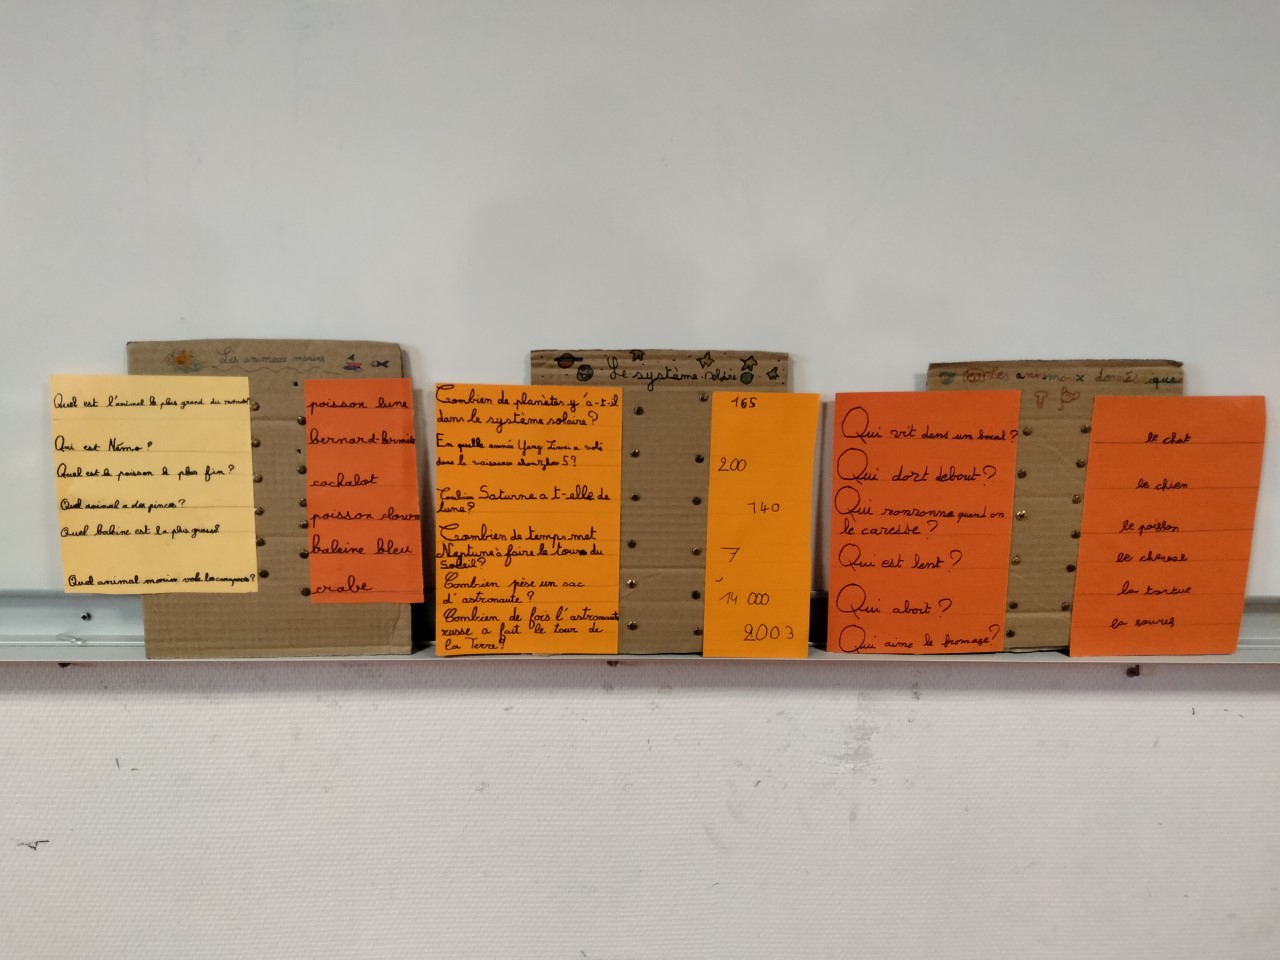 Les animaux marins
Quel est l'animal le plus grand du monde?
Qui est Némo?
Quel est le poisson le plus fin?
Quel animal a des pinces?
Quel baleine est la plus grosse?
Quel animal marin vole
poisson lune
bernard-hermite
cachalot
poisson clown
baleine bleu
crabe
Le système solaire
Combien de planètes y'a-t-il
dans le système solaire?
En quelle année Yang Liwei a volé
dans le vaisseau shenzhou 5?
Combien Saturne a t-elle de
lune?
Combien de temps met
Neptune à faire le tour du
Soleil?
Combien pèse un sac
d'astronaute?
Combien de fois l'astronaute
russe a fait le tour de
la Terre?
165
200
140
7
14 000
2003
les animaux domestique
Qui vit dans un bocal?
Qui dort debout?
Qui ronronne quand on
le caresse?
Qui est lent?
Qui aboit?
Qui aime le fromage?
le chat
le chien
le poisson
le cheval
la tortue
la souris